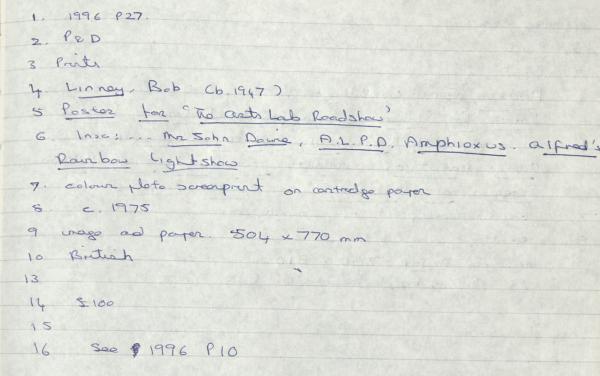 1. 1996 P27.
2. P&D
3 Prints
4. Linney, Bob (b.1947)
5 Poster for "The Arts Lab Roadshow'
6. Insc: ... Mr John Dowie, A.L.P.D. Amphioxus. Alfred's
Rainbow Lightshow
7. colour photo screenprint on cartridge paper
8 c. 1975
9 image and paper. 504 x 770 mm
10 British
13
14 £100
15
16 See 1996 P10